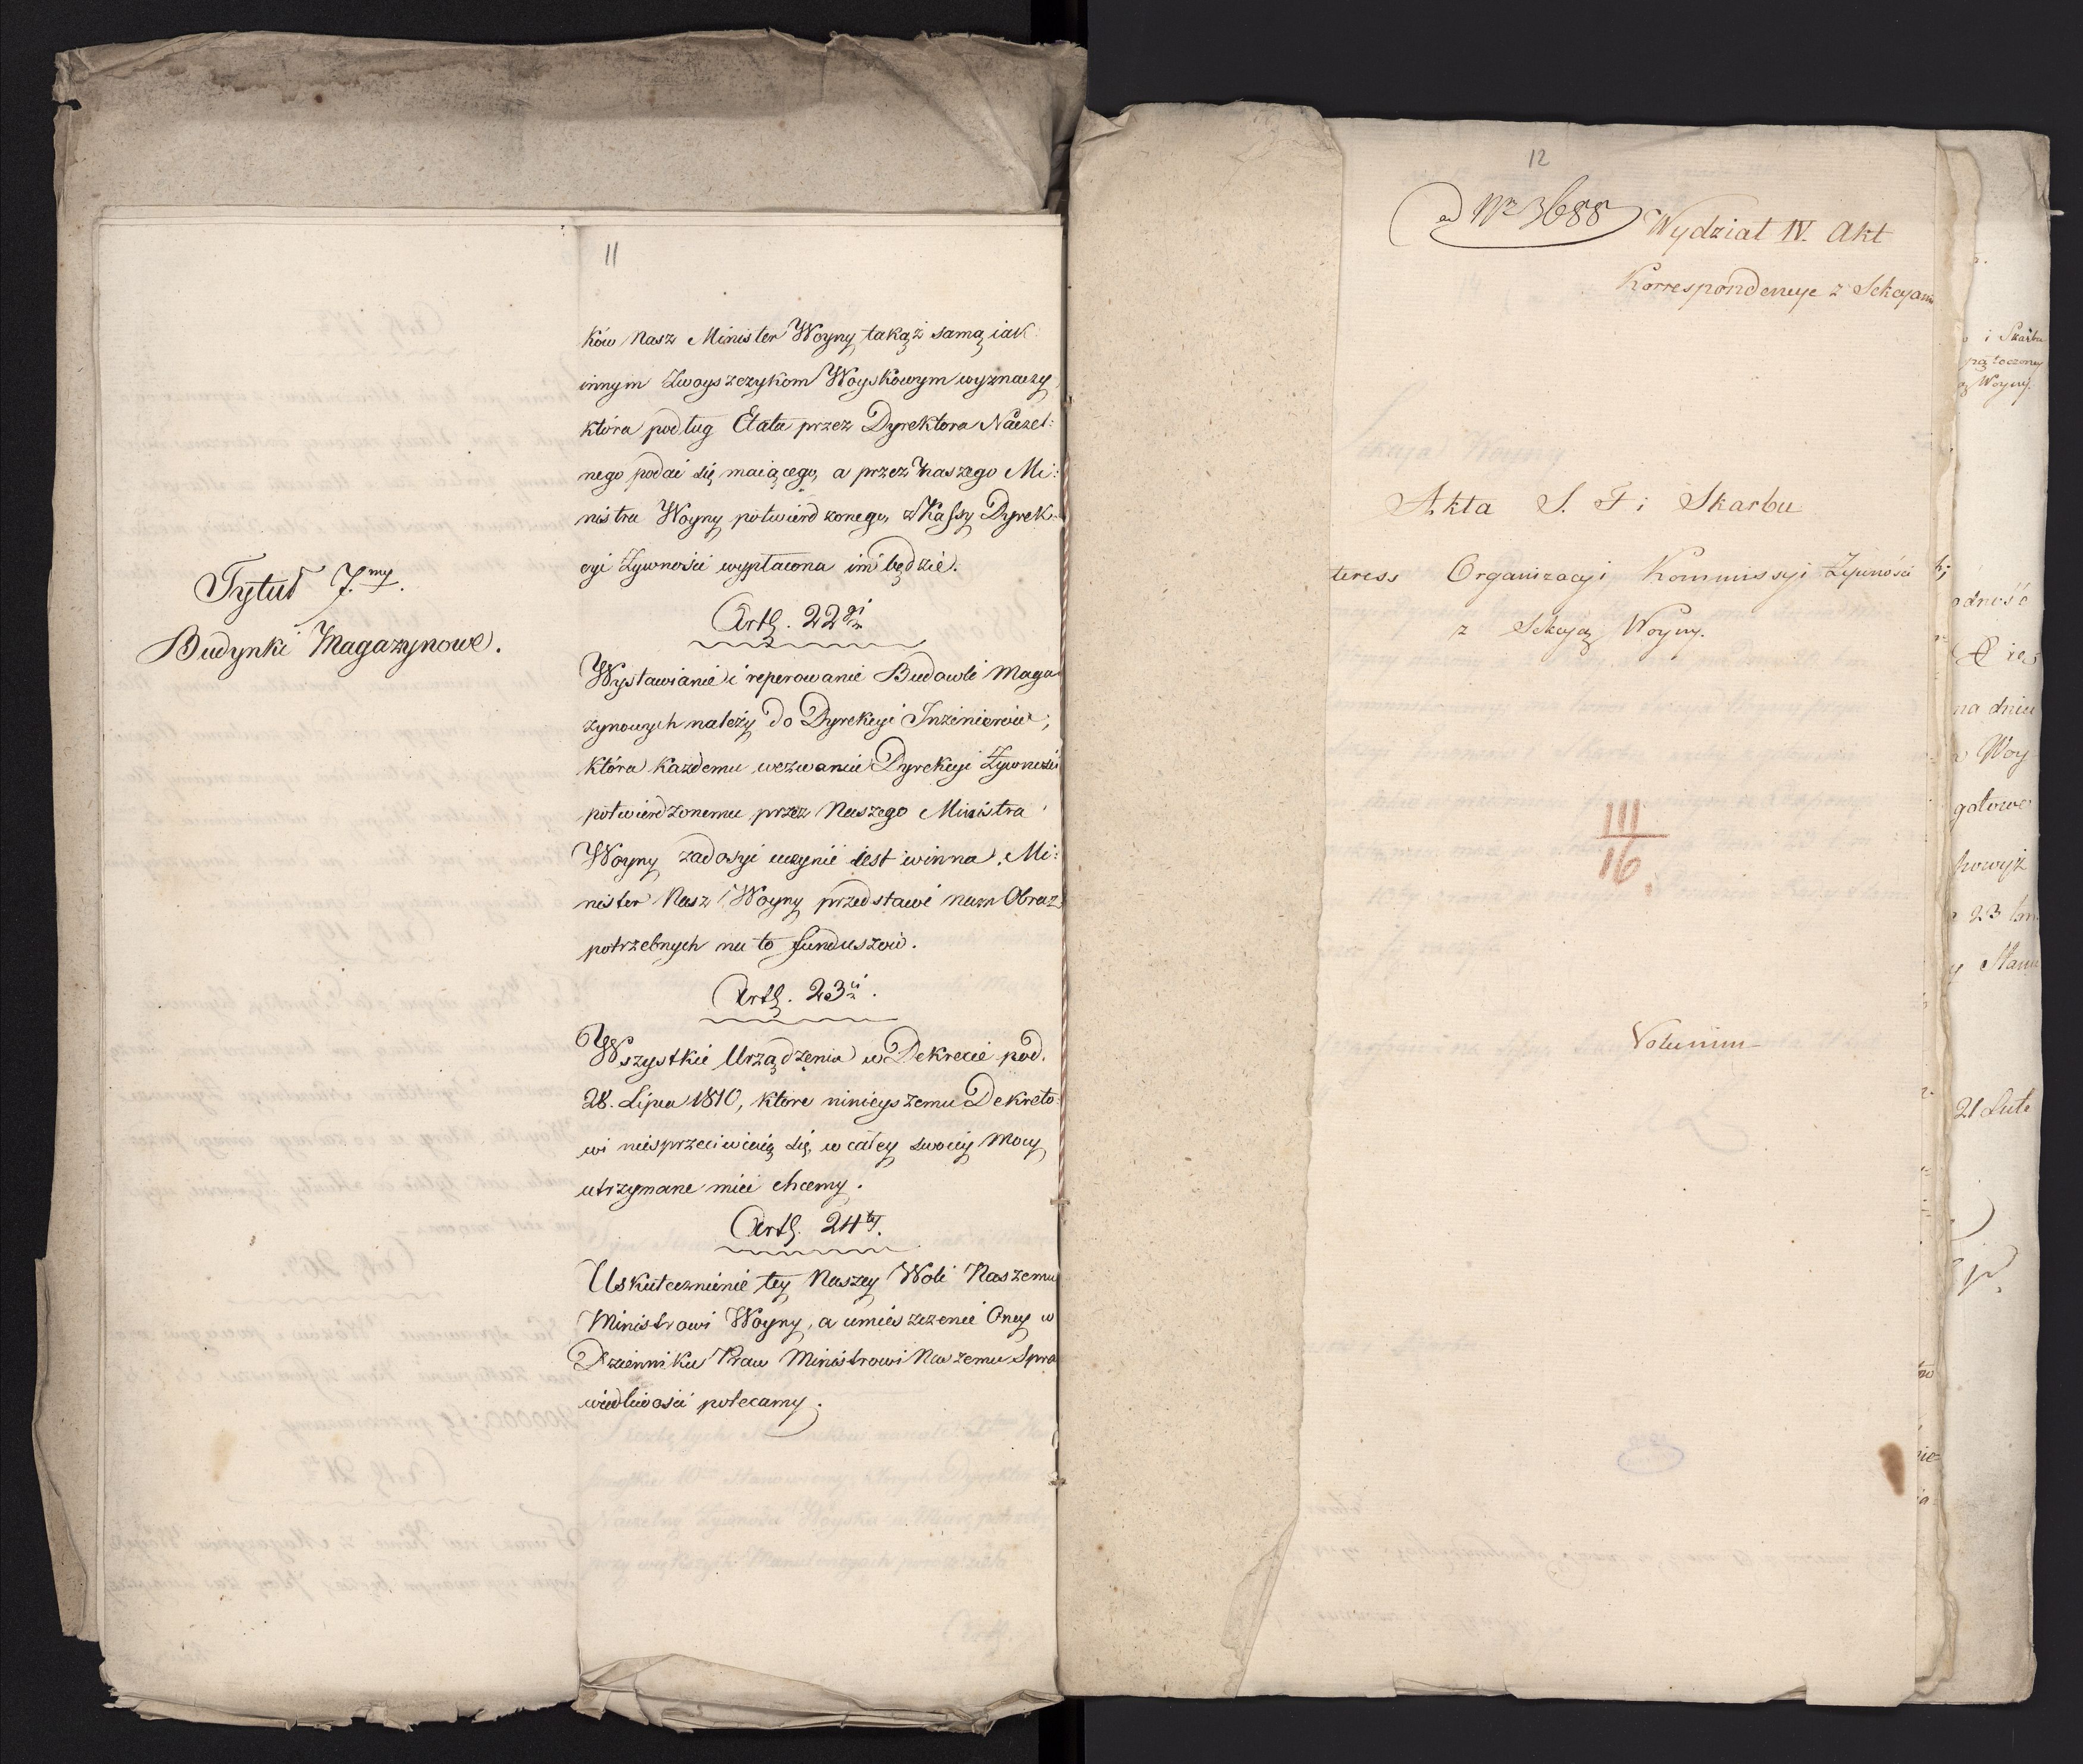 11
ków Nasz Minister Woyny takąż samą iak
innym Zwoyszczykom Woyskowym wyznaczy,
która podług Etatu przez Dyrektora Naczel:
nego podać się maiącego, a przez Naszego Mi:
nistra Woyny potwierdzonego, z Kassy Dyrek:
cyi Żywności wypłacona im będzie.
Tytuł 7.my.
Budynki Magazynowe.
Artł. 22gi
Wystawianie i reperowanie Budowli Maga
zynowych należy do Dyrekcyi Inżinierów,
która każdemu wezwaniu Dyrekcyi Żywności
potwierdzonemu przez Naszego Ministra
Woyny zadosyć uczynić iest winna. Mi:
nister Nasz Woyny przedstawi nam Obraz
potrzebnych na to funduszów.
Artł. 23ci.
Wszystkie Urządzenia w Dekrecie pod.
28. Lipca 1810, które ninieyszemu Dekreto
wi niesprzeciwiaią się, w całey swoiey Mocy
utrzymane mieć chcemy.
Artł. 24ty.
Uskutecznienie tey Naszey Woli Naszemu
Ministrowi Woyny, a umieszczenie Oney w
Dzienniku Praw Ministrowi Naszemu Spra
wiedliwości polecamy.
12
ad Nr 3688
Wydział IV. Akt
Korrespondencye z Sekcyami
Akta S. I i Skarbu
teress Organizacyi Kommissyi Żywności
z Sekcyą Woyny.
III
16.
Volumin
i Skarbu
Woyny.
na dniu
Woy
gotowe
23
21 Lute